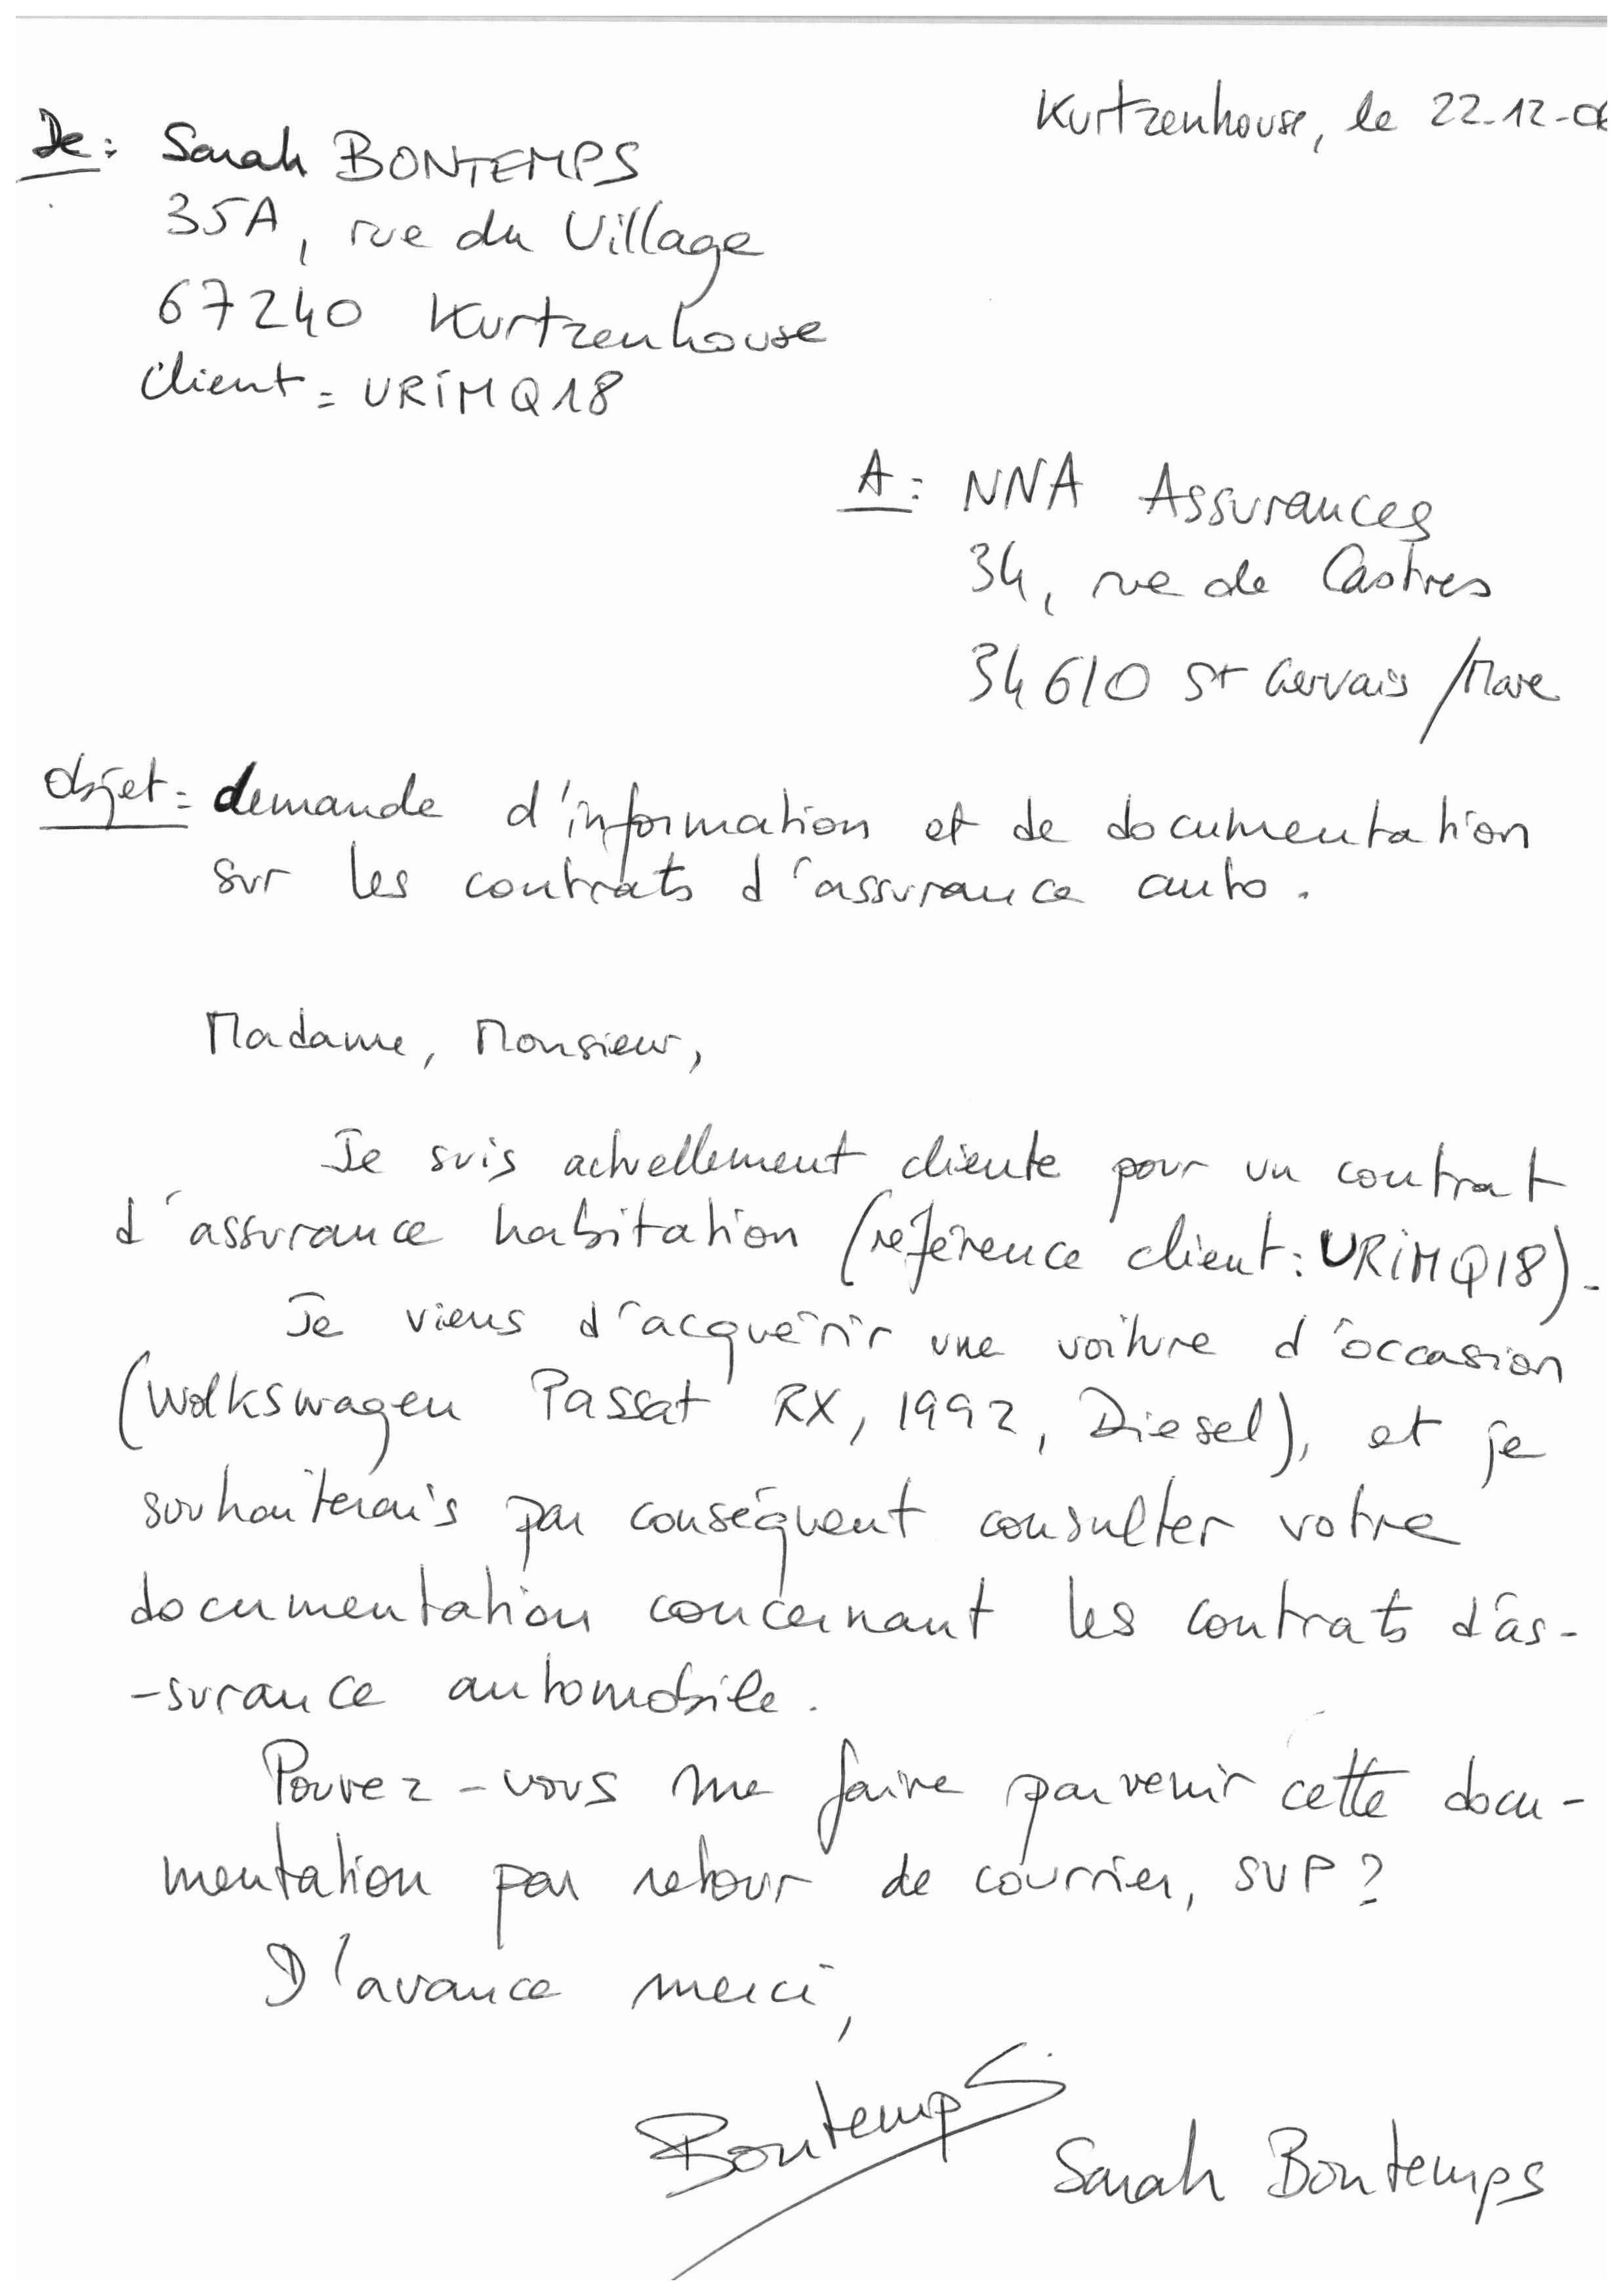 Kurtzenhouse, le 22-12-06
De : Sarah BONTEMPS
35A, rue du Village
67240 Kurtzenhouse
Client = URIMQ18
A : NNA Assurances
34, rue de Castres
34610 St Gervais / Mare
Objet = demande d'information et de documentation
sur les contrats d'assurance auto.
Madame, Monsieur,
Je suis actuellement cliente pour un contrat
d'assurance habitation (référence client : URIMQ18).
Je viens d'acquérir une voiture d'occasion
(Wolkswagen Passat RX, 1992, Diesel), et je
souhaiterais par conséquent consulter votre
documentation concernant les contrats d'as-
-surance automobile.
Pouvez-vous me faire parvenir cette docu-
mentation par retour de courrier, SVP ?
D'avance merci,
Bontemps
Sarah Bontemps